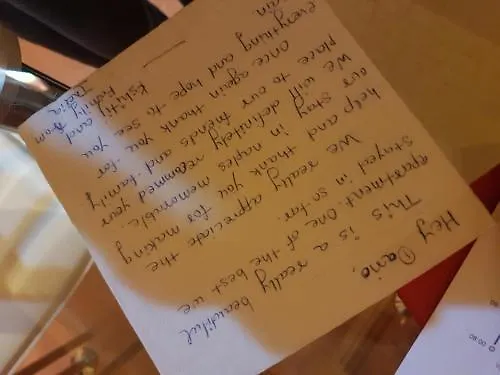 Hey Dario,
This is a really beautiful
apartment. One of the best we
stayed in so far.
We really appreciate the
help and thank you for making
our stay in naples memorable.
We will definitely recommend your
place to our friends and family
once again thank you for
everything and hope to see you
Kshitij and
family from
India